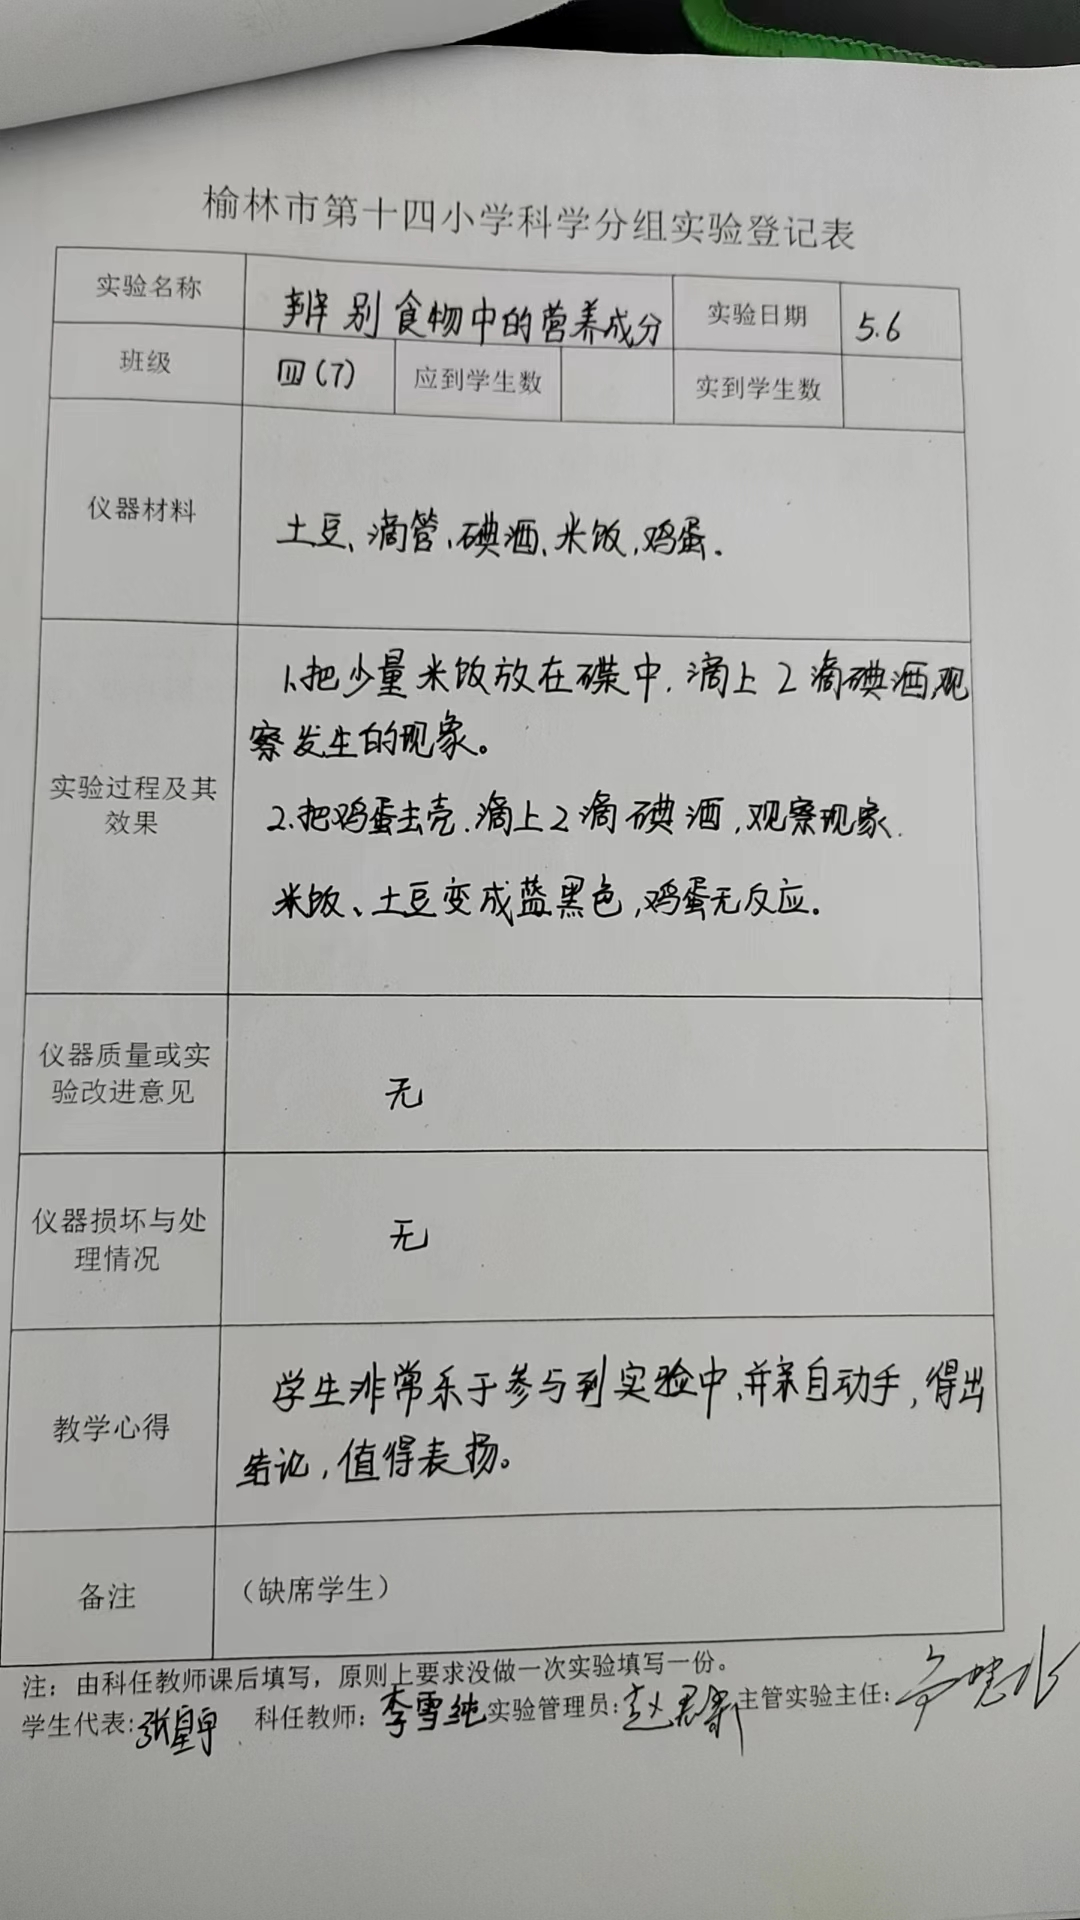 榆林市第十四小学科学分组实验登记表
实验名称 辨别食物中的营养成分 实验日期 5.6
班级 四(7) 应到学生数 实到学生数
仪器材料 土豆、滴管、碘酒、米饭,鸡蛋.
1.把少量米饭放在碟中.滴上2滴碘酒,观
察发生的现象。
实验过程及其
效果
2.把鸡蛋去壳.滴上2滴碘酒,观察现象.
米饭、土豆变成蓝黑色,鸡蛋无反应。
仪器质量或实
验改进意见
无
仪器损坏与处
理情况
无
教学心得
学生非常乐于参与到实验中,并亲自动手,得出
结论,值得表扬。
备注 (缺席学生)
注：由科任教师课后填写，原则上要求没做一次实验填写一份。
学生代表: 科任教师: 李雪纯 实验管理员: 主管实验主任: